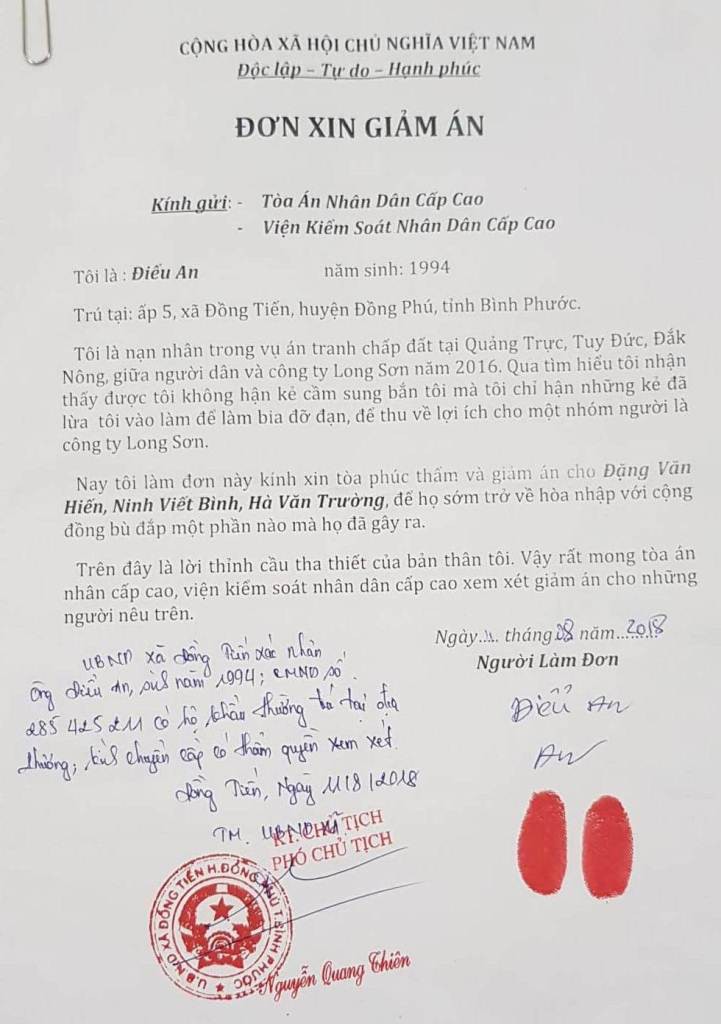 CỘNG HÒA XÃ HỘI CHỦ NGHĨA VIỆT NAM
Độc lập – Tự do – Hạnh phúc
ĐƠN XIN GIẢM ÁN
Kính gửi: - Tòa Án Nhân Dân Cấp Cao
- Viện Kiểm Soát Nhân Dân Cấp Cao
Tôi là : Điểu An năm sinh: 1994
Trú tại: ấp 5, xã Đồng Tiến, huyện Đồng Phú, tỉnh Bình Phước.
Tôi là nạn nhân trong vụ án tranh chấp đất tại Quảng Trực, Tuy Đức, Đắk
Nông, giữa người dân và công ty Long Sơn năm 2016. Qua tìm hiểu tôi nhận
thấy được tôi không hận kẻ cầm sung bắn tôi mà tôi chỉ hận những kẻ đã
lừa tôi vào làm để làm bia đỡ đạn, để thu về lợi ích cho một nhóm người là
công ty Long Sơn.
Nay tôi làm đơn này kính xin tòa phúc thẩm và giảm án cho Đặng Văn
Hiến, Ninh Viết Bình, Hà Văn Trường, để họ sớm trở về hòa nhập với cộng
đồng bù đắp một phần nào mà họ đã gây ra.
Trên đây là lời thỉnh cầu tha thiết của bản thân tôi. Vậy rất mong tòa án
nhân cấp cao, viện kiểm soát nhân dân cấp cao xem xét giảm án cho những
người nêu trên.
Ngày.... tháng 08 năm 2018
Người Làm Đơn
UBND xã Đồng Tiến xác nhận
Ông Điểu An, sinh năm 1994; CMND số
285 425 211 có hộ khẩu thường trú tại địa
phương; kính chuyển cấp có thẩm quyền xem xét.
Đồng Tiến, Ngày 1/8/2018
TM. UBND xã
KT. CHỦ TỊCH
PHÓ CHỦ TỊCH
Điểu An
An
U.B.N.D XÃ ĐỒNG TIẾN H.ĐỒNG PHÚ T.BÌNH PHƯỚC
Nguyễn Quang Thiên